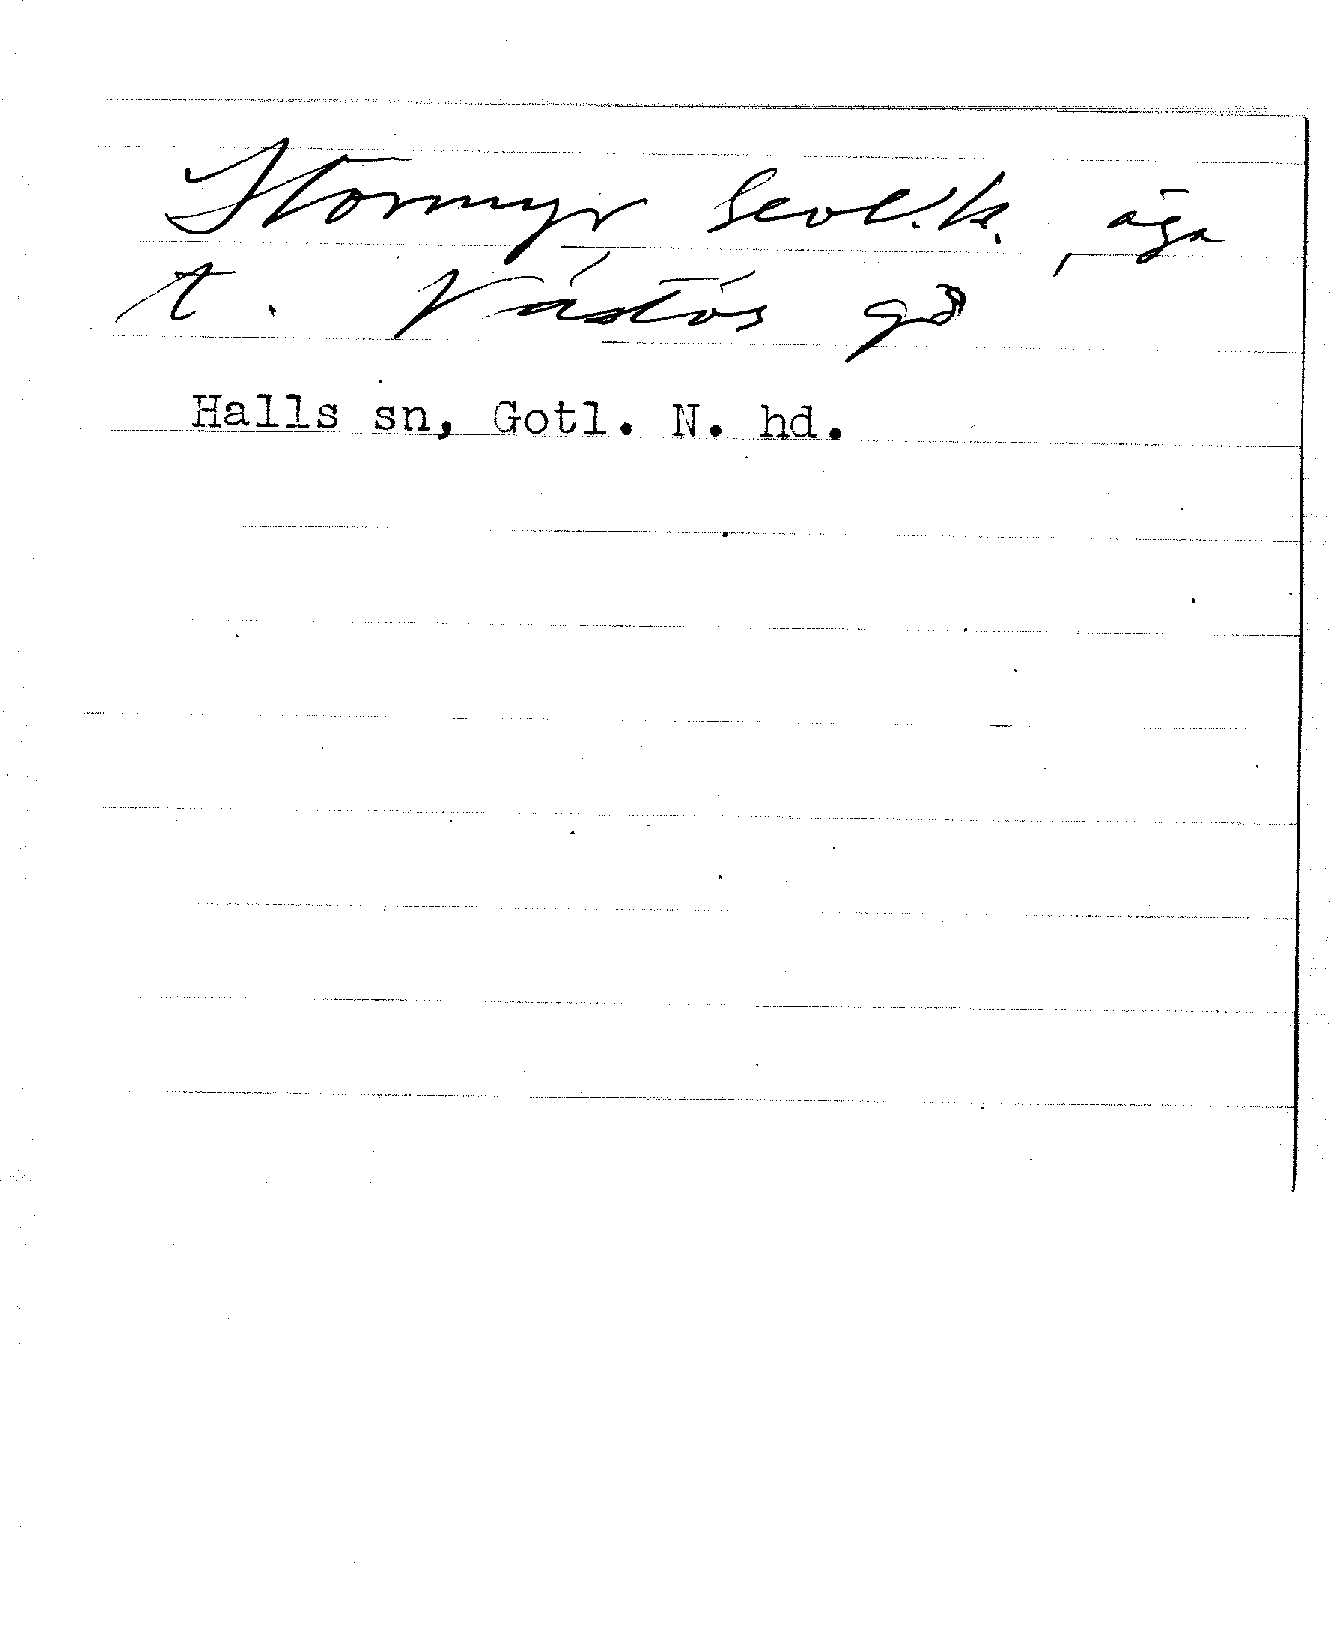 Stormyr Geol.k., äga
t. Västös gd
Halls sn, Gotl. N. hd.